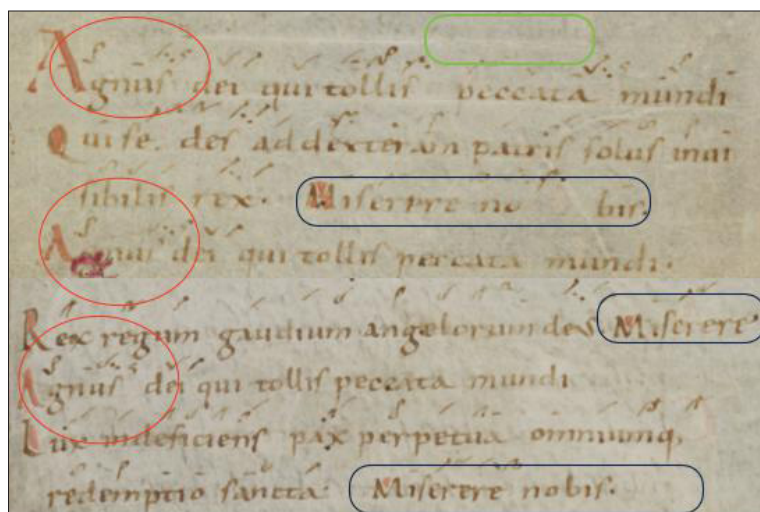 Agnus dei qui tollis peccata mundi
Qui sedes ad dexteram patris solus inui
sibilis rex. Miserere no bis.
Agnus dei qui tollis peccata mundi.
Rex regum gaudium angelorum deus Miserere
Agnus dei qui tollis peccata mundi
Lux indeficiens pax perpetua omniumq;
redemptio sancta. Miserere nobis.